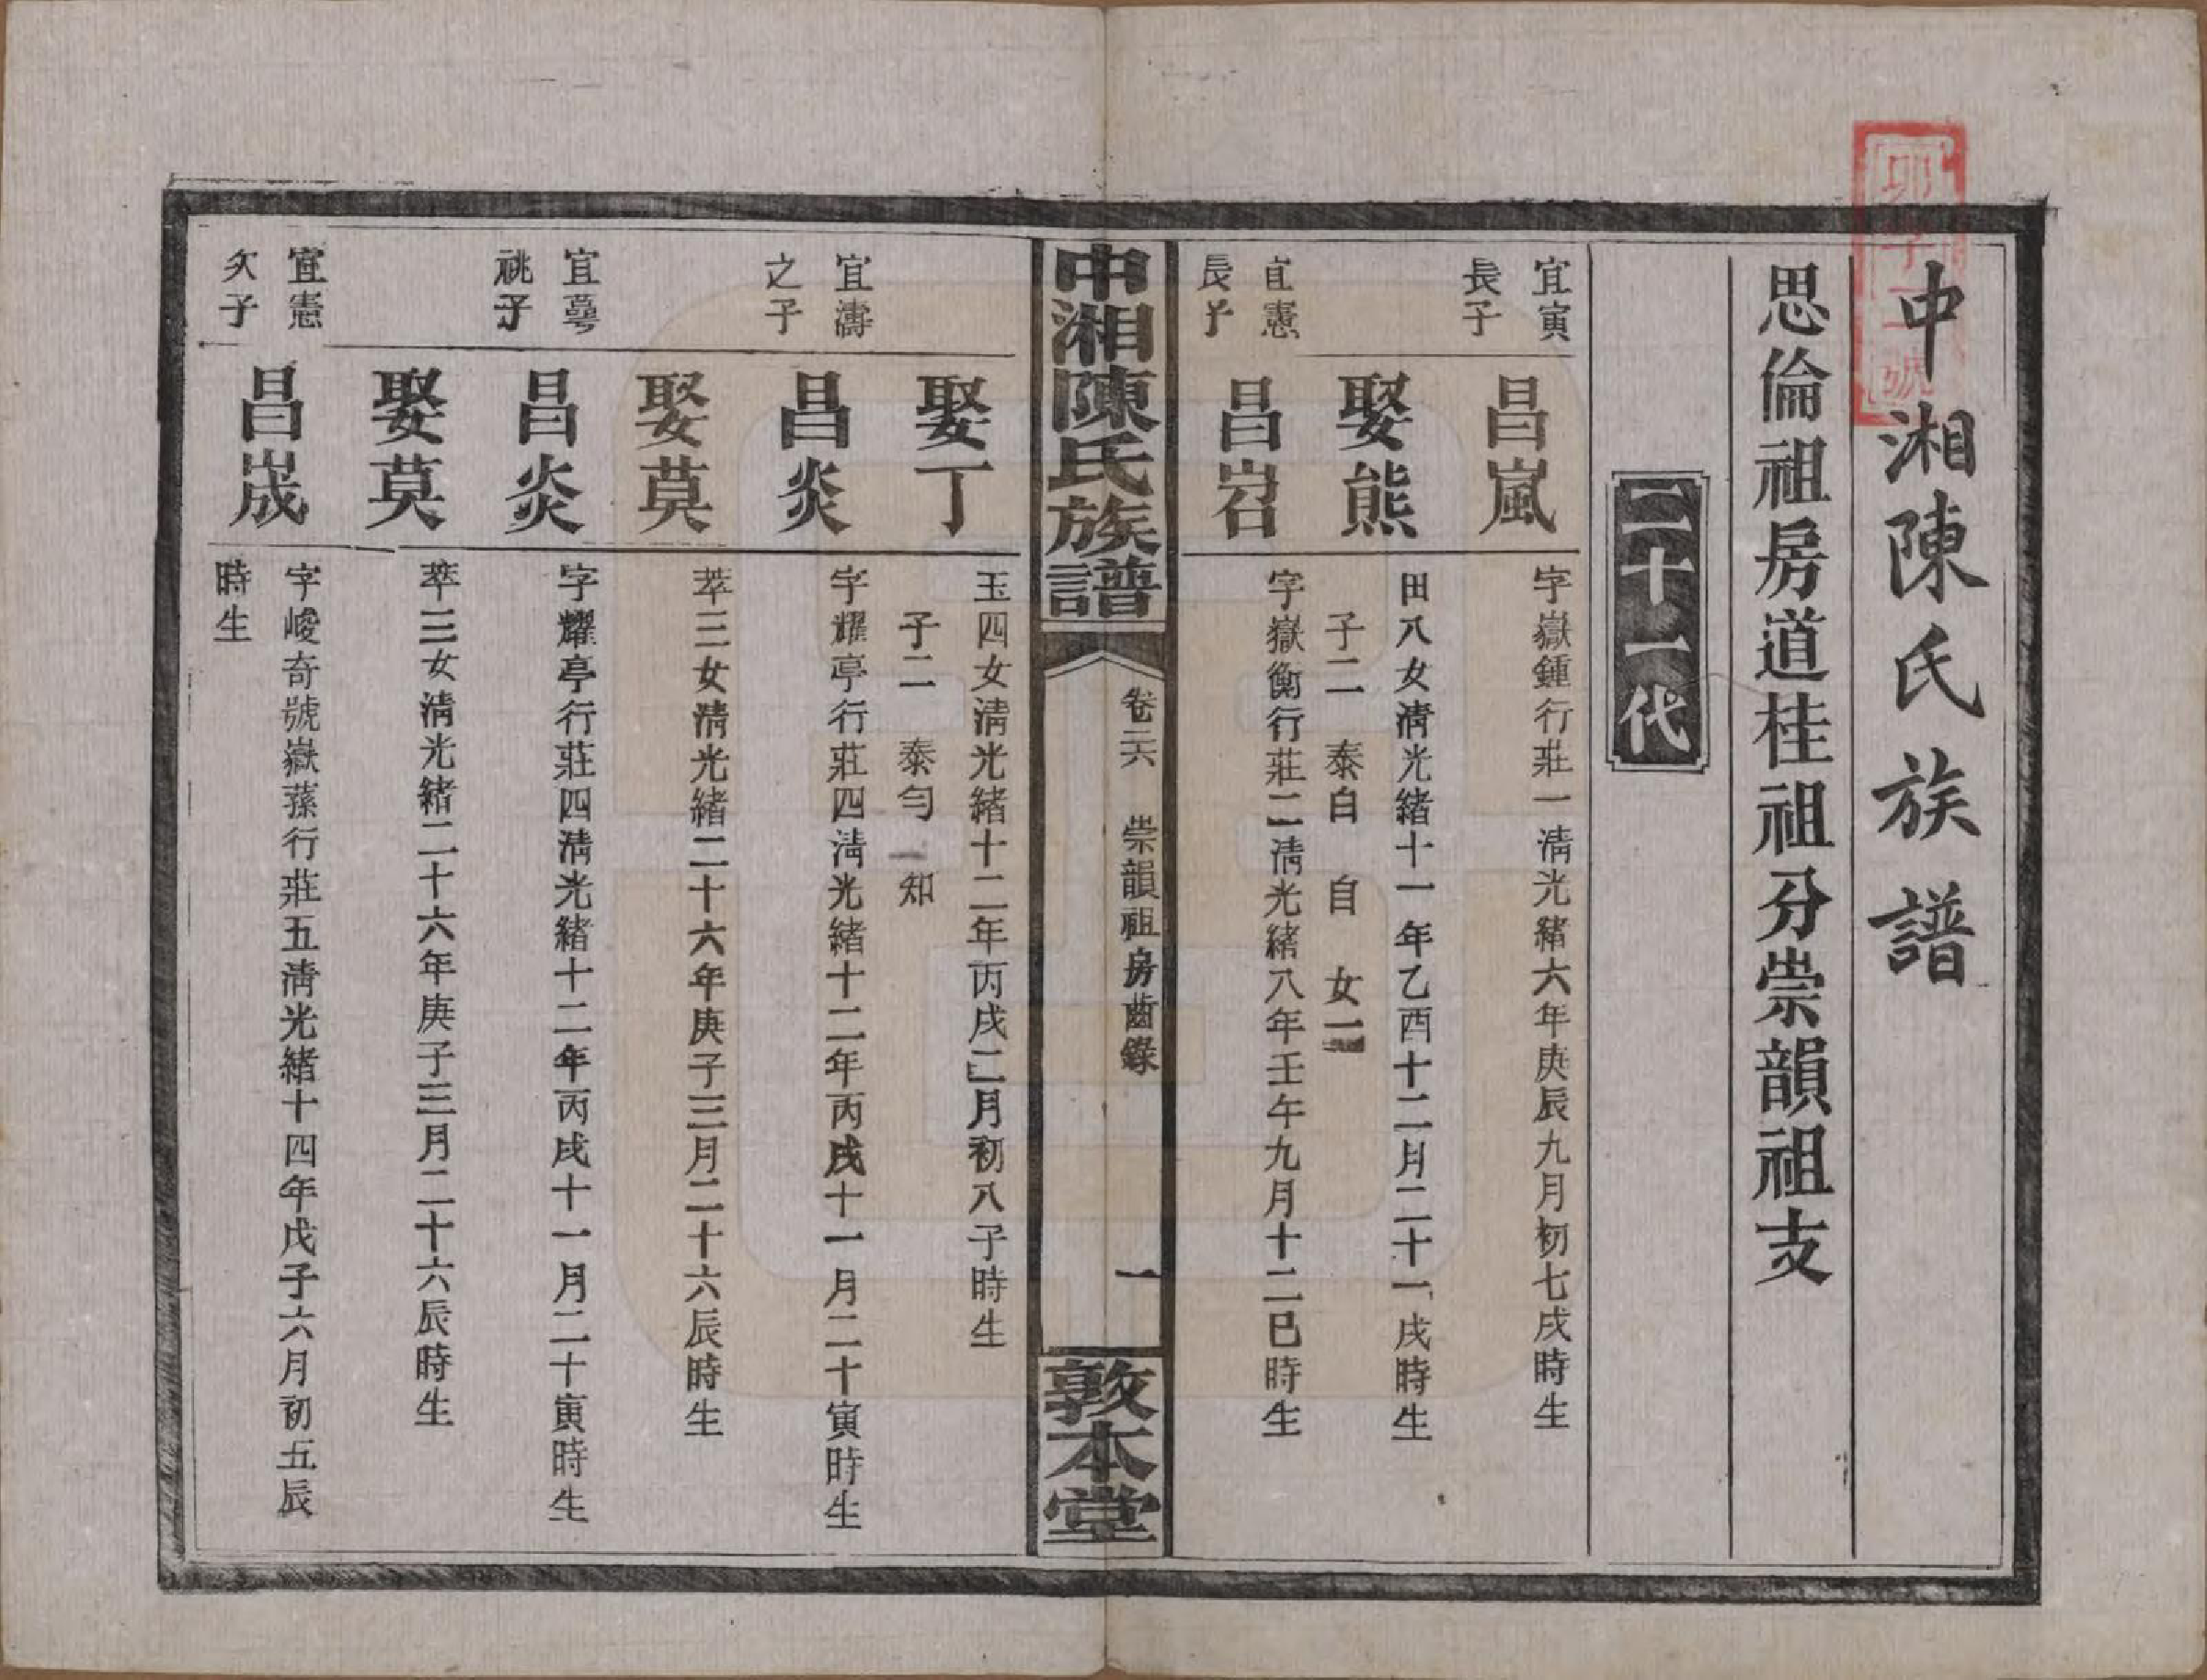 中湘陳氏族譜
思倫祖房道桂祖分崇韻祖支
二十一代
宜寅
長子
昌嵐
字嶽鍾行莊一淸光緒六年庚辰九月初七戌時生
娶熊
田八女淸光緒十一年乙酉十二月二十一戌時生
子二 泰自 自 女二
宜憲
長子
昌岧
字嶽衡行莊二淸光緒八年壬午九月十二巳時生
中湘陳氏族譜
卷二六 崇韻祖房齒錄
一
敦本堂
娶丁
玉四女淸光緒十二年丙戌二月初八子時生
子二 泰勻 知
宜濤
之子
昌炎
字耀亭行莊四淸光緒十二年丙戌十一月二十寅時生
娶莫
萃三女淸光緒二十六年庚子三月二十六辰時生
宜萼
祧子
昌炎
字耀亭行莊四淸光緒十二年丙戌十一月二十寅時生
娶莫
萃三女淸光緒二十六年庚子三月二十六辰時生
宜憲
次子
昌峸
字峻奇號嶽蓀行莊五淸光緒十四年戊子六月初五辰
時生